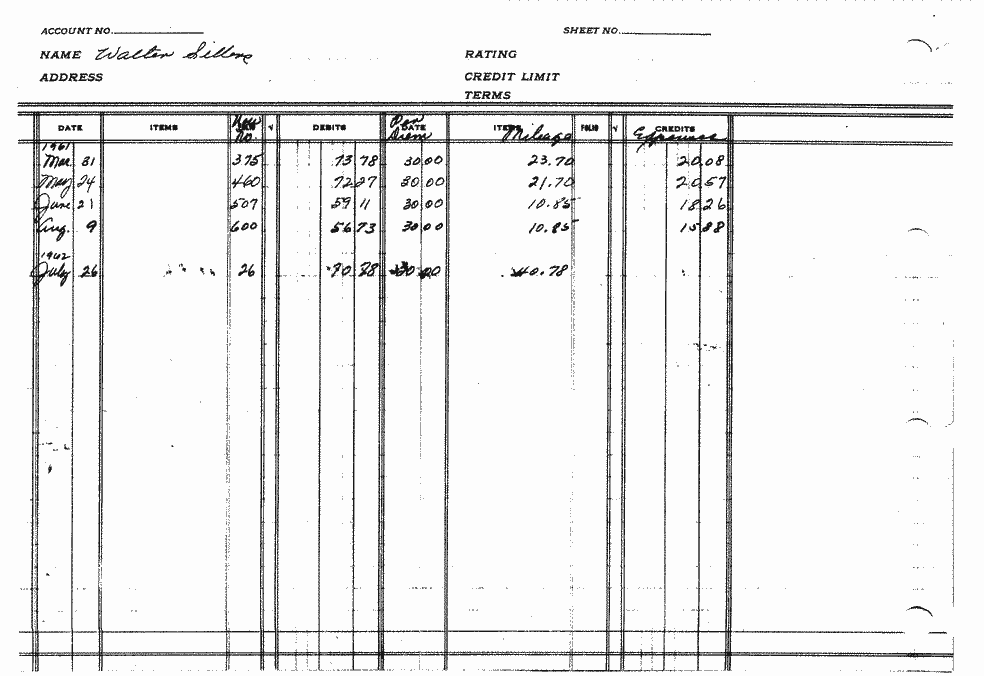 ACCOUNT NO. SHEET NO.
NAME Walter Sillers RATING
ADDRESS CREDIT LIMIT
TERMS
DATE ITEMS No. √ DEBITS Per Diem DATE ITEMS Mileage FOLIO √ CREDITS Expenses
1961
Mar. 31 375 73 78 30 00 23.70 20 08
May 24 460 72 27 30 00 21.70 20 57
June 21 507 59 11 30 00 10.85 18 26
Aug. 9 600 56 73 30 00 10.85 15 88
1962
July 26 26 30 00 40.78